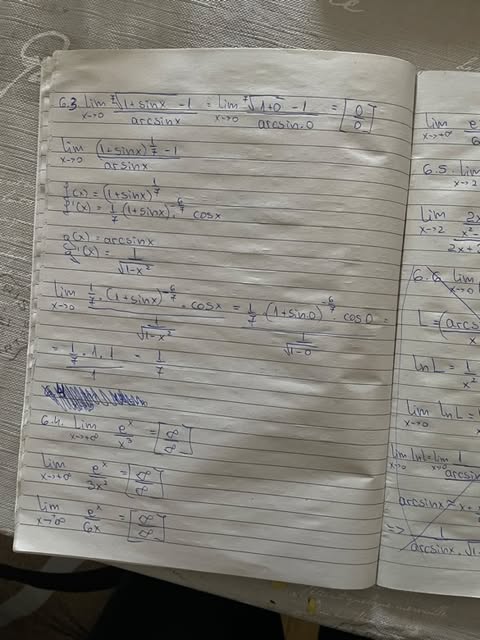 6.3 lim x→0 (⁷√(1+sinx) -1)/(arcsinx) = lim x→0 (⁷√(1+0) -1)/(arcsin.0) = [0/0]
lim x→0 ((1+sinx)^(1/7) -1)/(arsinx)
f(x) = (1+sinx)^(1/7)
f'(x) = 1/7 (1+sinx)^(-6/7) · cosx
g(x) = arcsinx
g'(x) = 1/√(1-x²)
lim x→0 (1/7 · (1+sinx)^(-6/7) · cosx)/(1/√(1-x²)) = (1/7 · (1+sin0)^(-6/7) · cos0)/(1/√(1-0)) =
= (1/7 · 1 · 1)/1 = 1/7
6.4. lim x→+∞ e^x/x³ = [∞/∞]
lim x→+∞ e^x/3x² = [∞/∞]
lim x→∞ e^x/6x = [∞/∞]
lim x→+∞
6.5. lim x→2
lim x→2
6.6 lim x→0
L = (arcs
lnL = 1/x²
lim x→0 lnL =
lim x→0 lnL = lim x→0 1/
arcsin
arcsinx ≈ x +
=> 1/
arcsinx · √1-